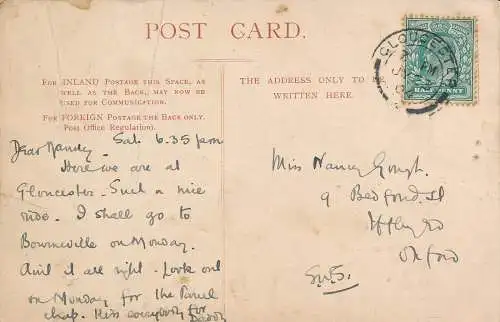 POST CARD.
FOR INLAND POSTAGE THIS SPACE, AS
WELL AS THE BACK, MAY NOW BE
USED FOR COMMUNICATION.
FOR FOREIGN POSTAGE THE BACK ONLY.
Post Office Regulation).
THE ADDRESS ONLY TO
WRITTEN HERE.
GLOUCESTER
PM
HALF PENNY
Sat. 6.35 pm
Dear Nancy,
Here we are at
Gloucester. Such a nice
ride. I shall go to
Bourneville on Monday.
Ain't it all right. Look out
on Monday for the Parcel
chap. Kiss everybody for
Daddy
Miss Nancy Gough.
9 Bedford St
Iffley Rd
Oxford